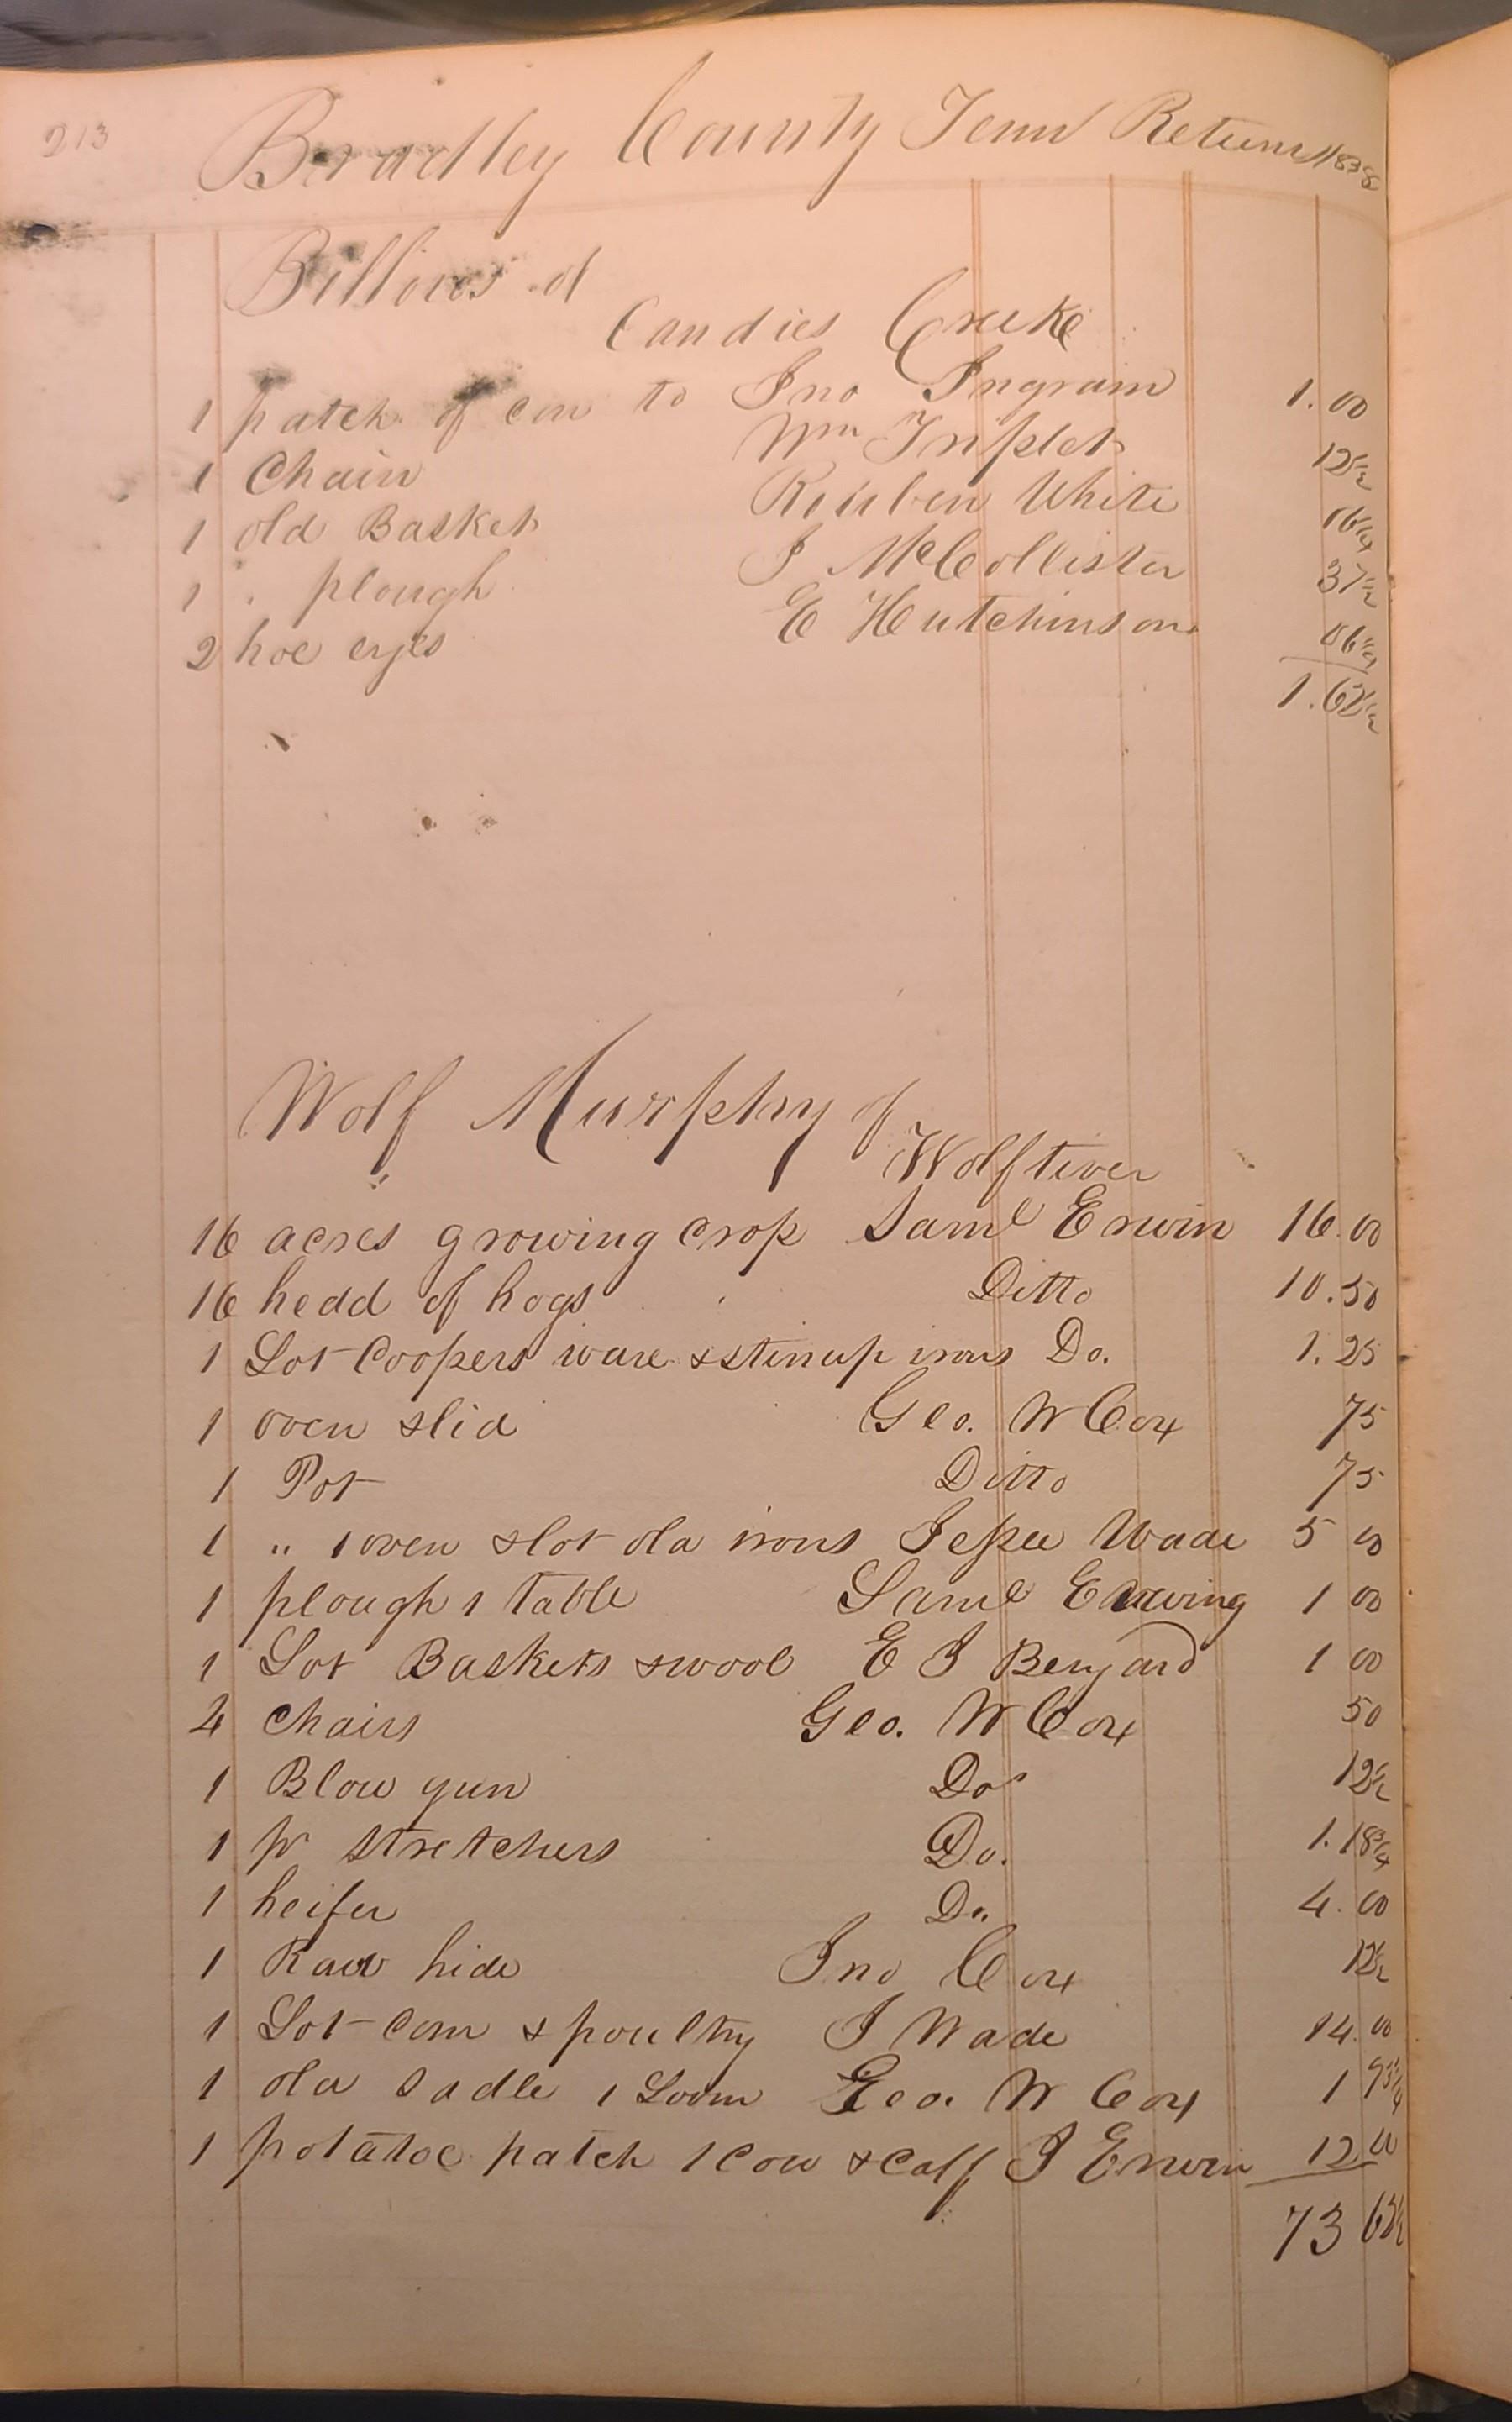 213
Bradley County Tenn Returns 1838
Billows of
Candies Creeke
1 patch of corn to Jno Ingram 1.00
1 Chain Wm Triplet 12½
1 old Basket Reuben White 06¼
1 " plough J McCollister 37½
2 hoe eyes E Hutchinson 06¼
1.62½
Wolf Murphy of
Wolftiver
16 acres growing crop Saml Erwin 16.00
16 head of hogs Ditto 10.50
1 Lot Coopers ware & stirrup irons Do. 1.25
1 oven & lid Geo. W Cox 75
1 Pot Ditto 75
1 " 1 oven & lot old irons Jesse Wade 5 00
1 plough 1 table Saml Erwing 1 00
1 Lot Baskets & wool E J Benyard 1 00
4 chairs Geo. W Cox 50
1 Blow gun Do 12½
1 pr stretchers Do. 1.18¾
1 heifer Do 4.00
1 Raw hide Jno Cox 12½
1 Lot corn & poultry J Wade 14.00
1 old Sadle 1 Loom Geo. W Cox 1 93¾
1 potatoe patch 1 Cow & Calf S Erwin 12 00
73 62½